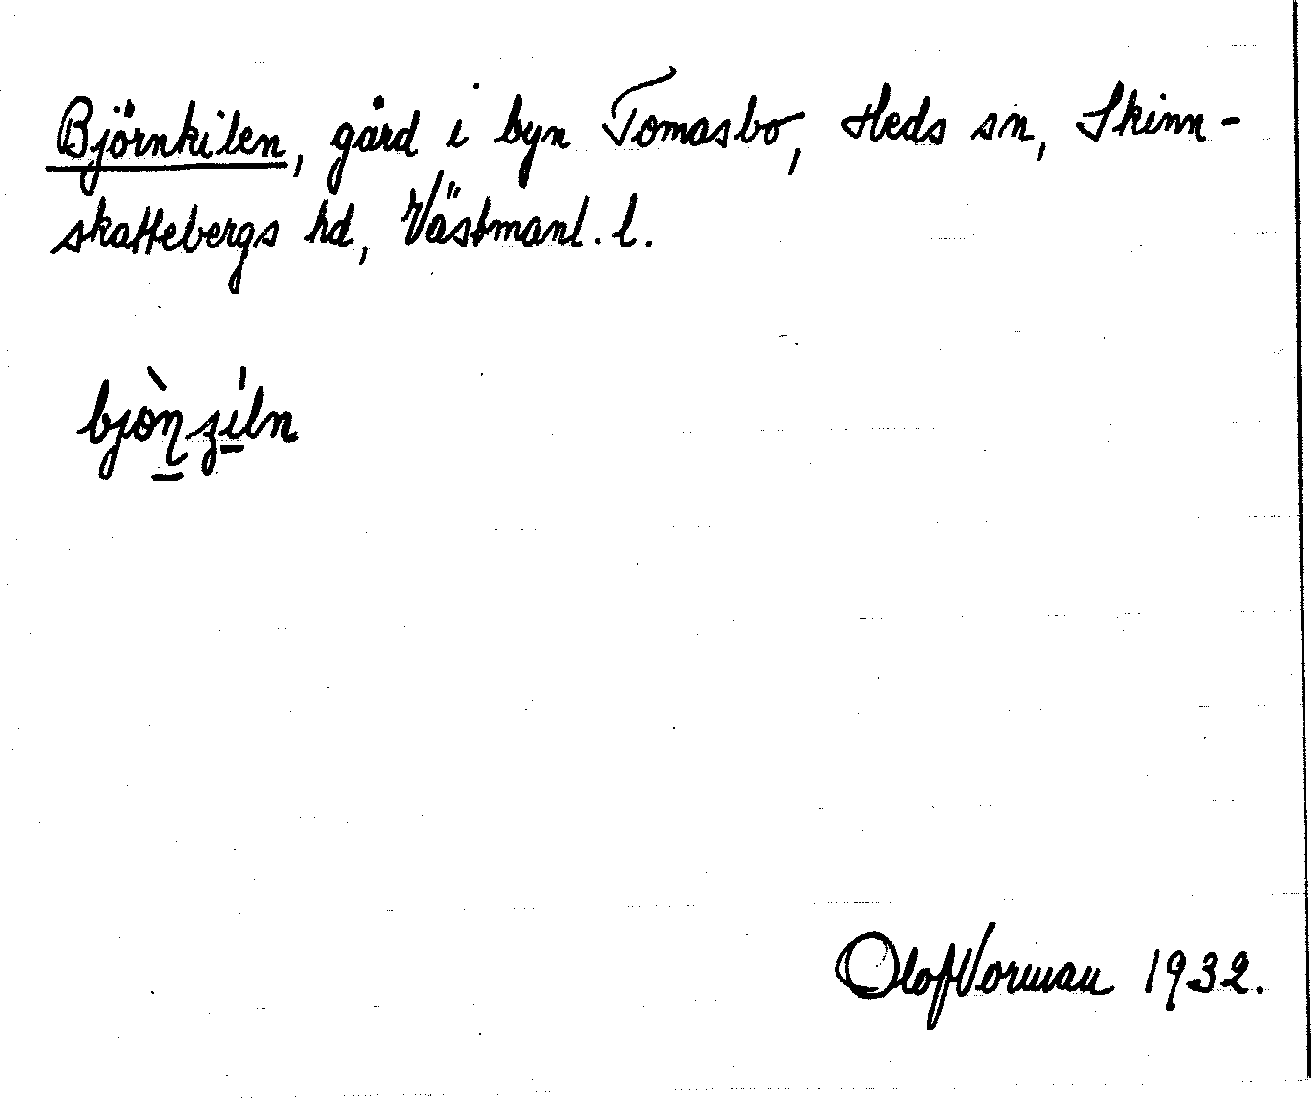 Björnkilen, gård i byn Tomasbo, Heds sn, Skinn-
skattebergs hd, Västmanl. l.
Olof Vorman 1932.